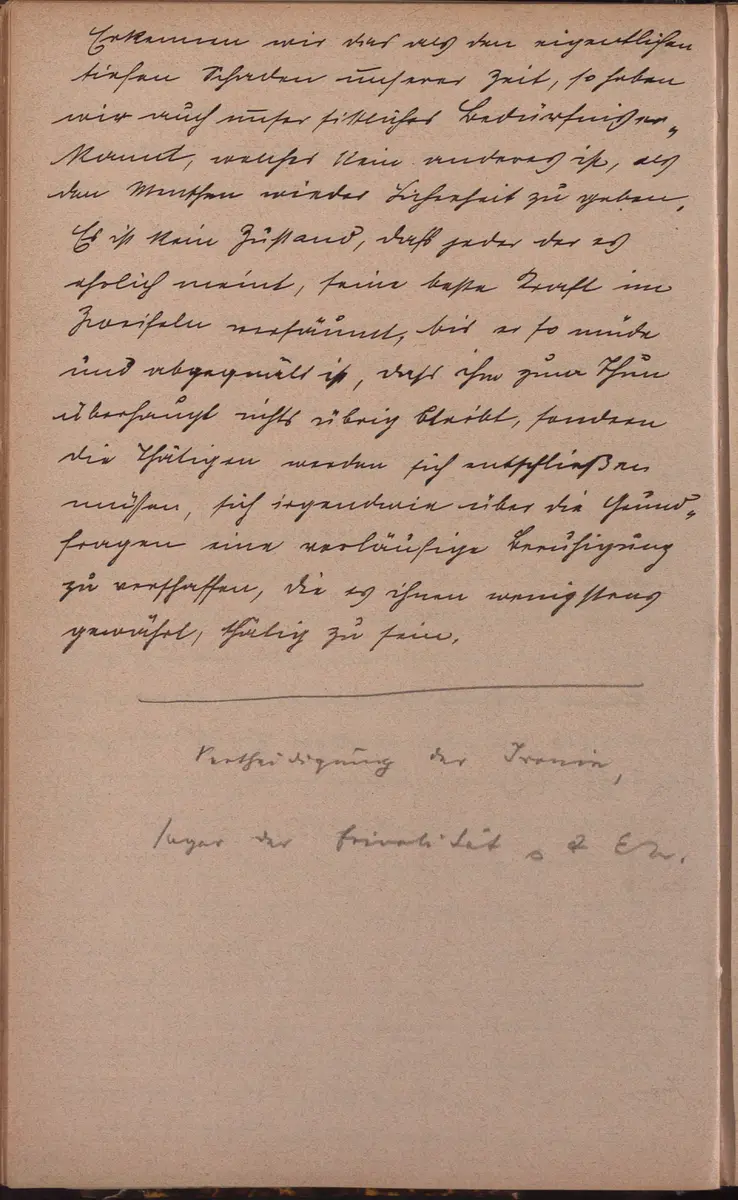 Erkennen wir das als den eigentlichen
tiefen Schaden unserer Zeit, so haben
wir auch unser sittliches Bedürfnis er-
kannt, welches kein anderes ist, als
den Menschen wieder Sicherheit zu geben.
Es ist kein Zustand, daß jeder der es
ehrlich meint, seine beste Kraft im
Zweifeln versäumt, bis er so müde
und abgequält ist, daß ihm zum Thun
überhaupt nichts übrig bleibt, sondern
die Thätigen werden sich entschließen
müssen, sich irgendwie über die Grund-
fragen eine vorläufige Beruhigung
zu verschaffen, die es ihnen wenigstens
gewährt, thätig zu sein.
Vertheidigung der Ironie,
sogar der Frivolität